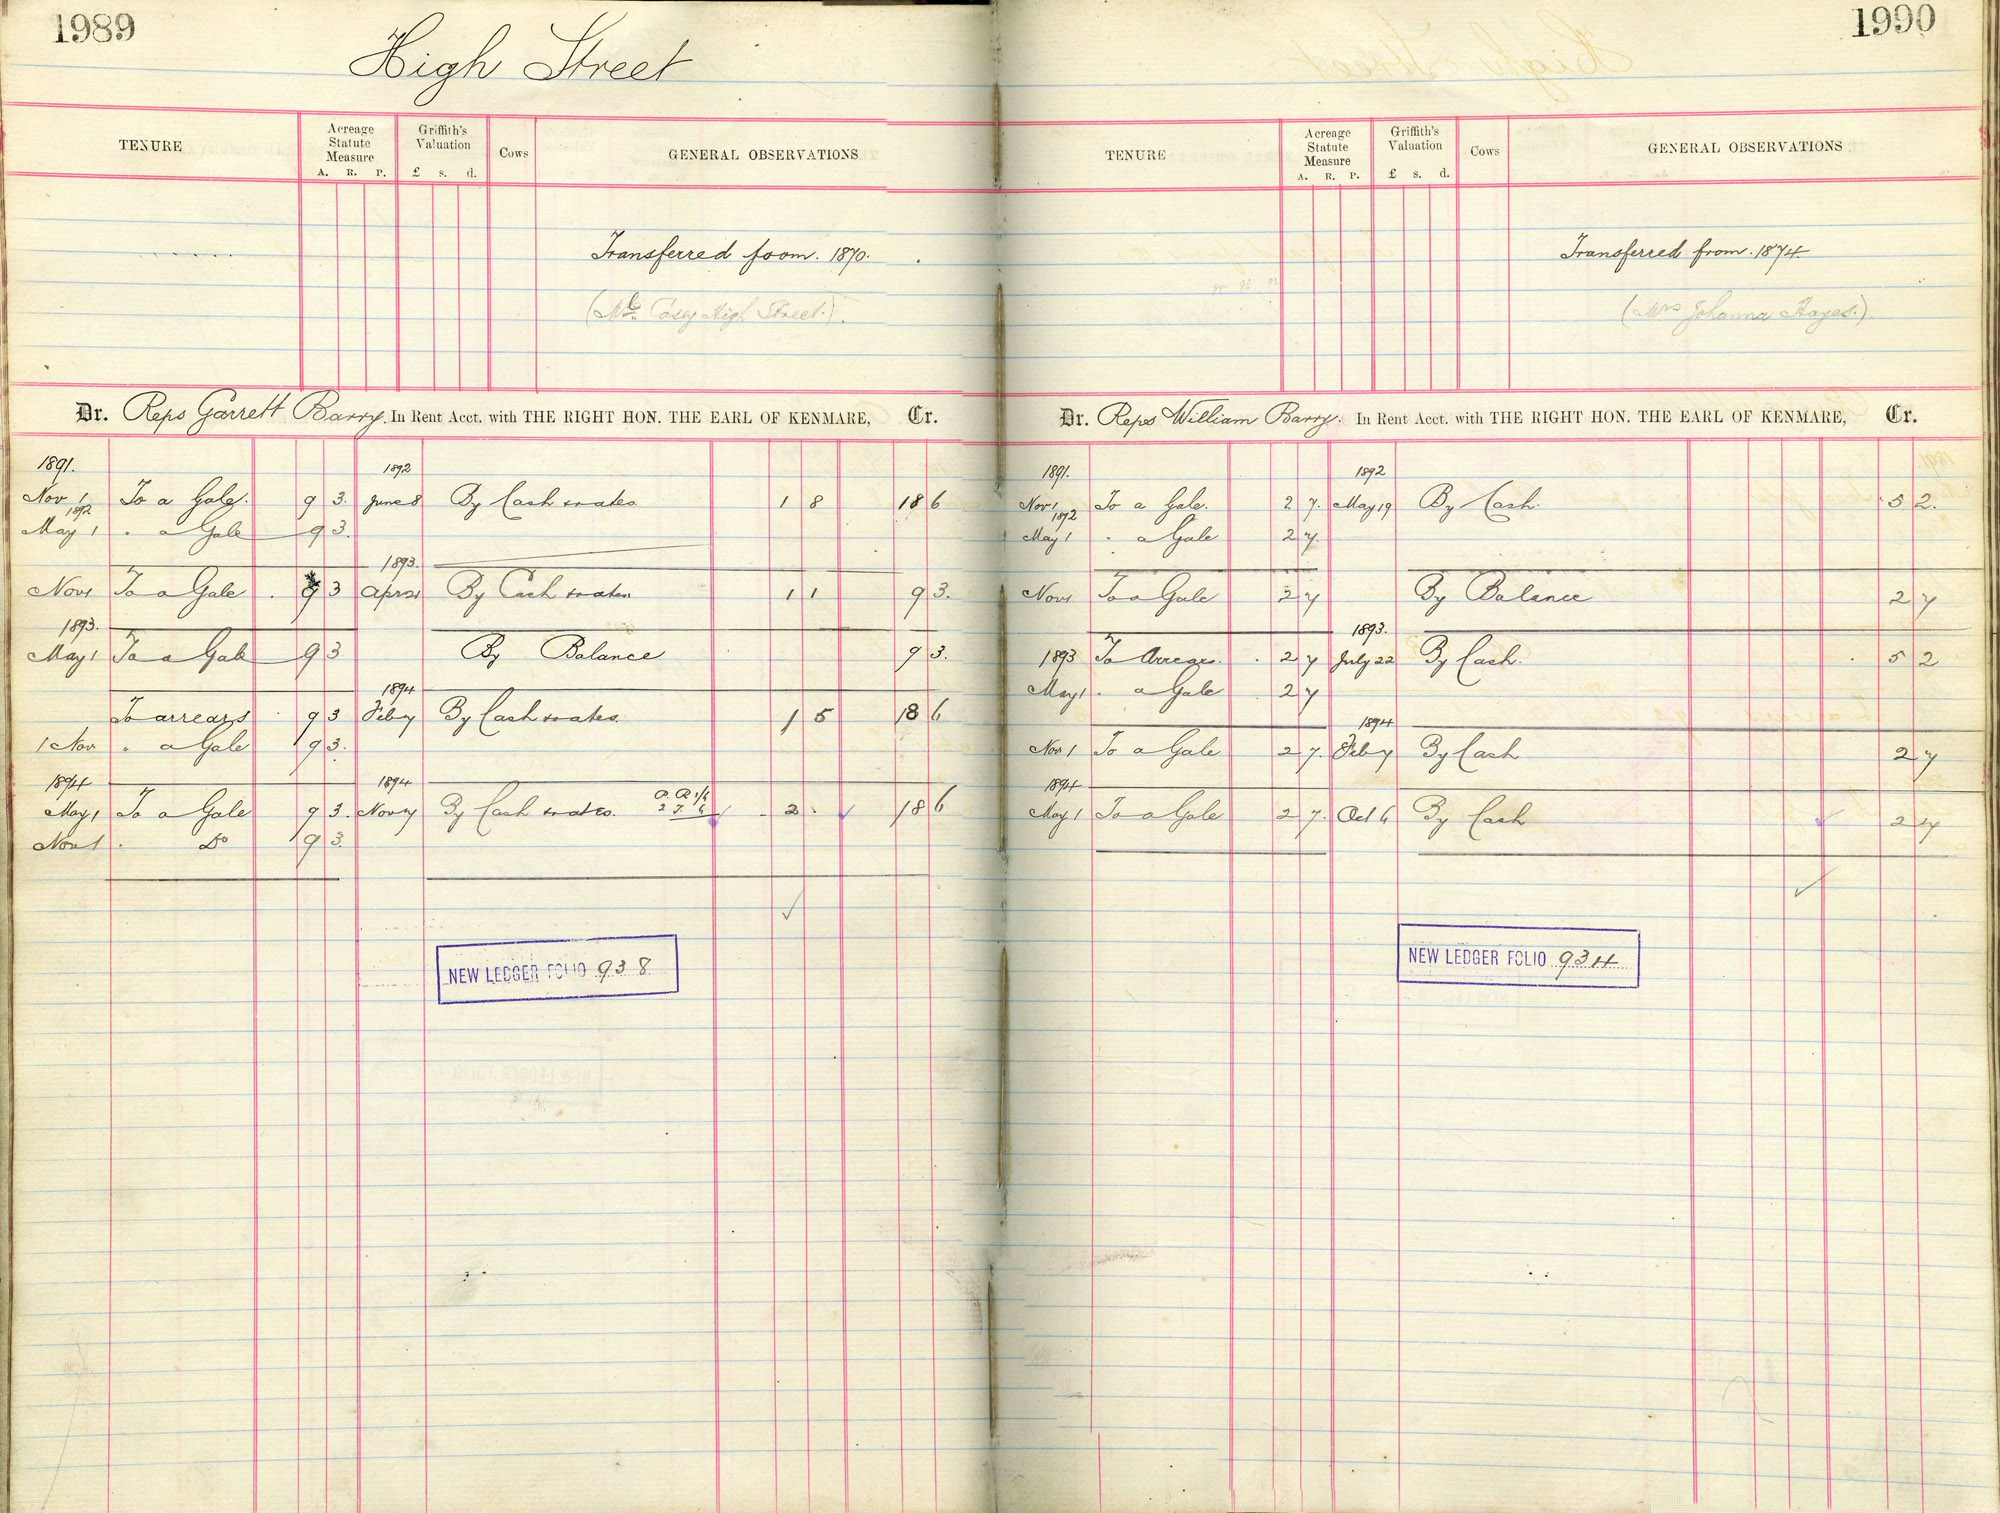 1989
High Street
TENURE
Acreage Statute Measure
A. R. P.
Griffith's Valuation
£ s. d.
Cows
GENERAL OBSERVATIONS
Transferred from. 1870.
Casey High Street.)
Dr. Reps Garrett Barry. In Rent Acct. with THE RIGHT HON. THE EARL OF KENMARE, Cr.
1891. 1892
Nov 1 To a Gale. 9 3. June 8 By Cash & rates 1 8 18 6
1892
May 1 " a Gale 9 3.
1893.
Nov 1 To a Gale 9 3 Apr 21 By Cash & rates 1 1 9 3.
1893.
May 1 To a Gale 9 3 By Balance 9 3.
1894
To arrears 9 3 Feby By Cash & rates 1 5 18 6
1 Nov " a Gale 9 3.
1894 1894
May 1 To a Gale 9 3. Nov 7 By Cash & rates. 2 18 6
Nov 1 " Do 9 3.
NEW LEDGER FOLIO 938
1990
TENURE
Acreage Statute Measure
A. R. P.
Griffith's Valuation
£ s. d.
Cows
GENERAL OBSERVATIONS
Transferred from. 1874
(Mrs Johanna Hayes.)
Dr. Reps William Barry. In Rent Acct. with THE RIGHT HON. THE EARL OF KENMARE, Cr.
1891. 1892
Nov 1 To a Gale. 2 7. May 19 By Cash. 5 2.
1892
May 1 " a Gale 2 7.
Nov 1 To a Gale 2 7 By Balance 2 7
1893.
1893 To Arrears. 2 7 July 22 By Cash. 5 2
May 1 " a Gale 2 7
1894
Nov 1 To a Gale 2 7. Feby By Cash 2 7
1894
May 1 To a Gale 2 7. Oct 6 By Cash 2 7
NEW LEDGER FOLIO 934